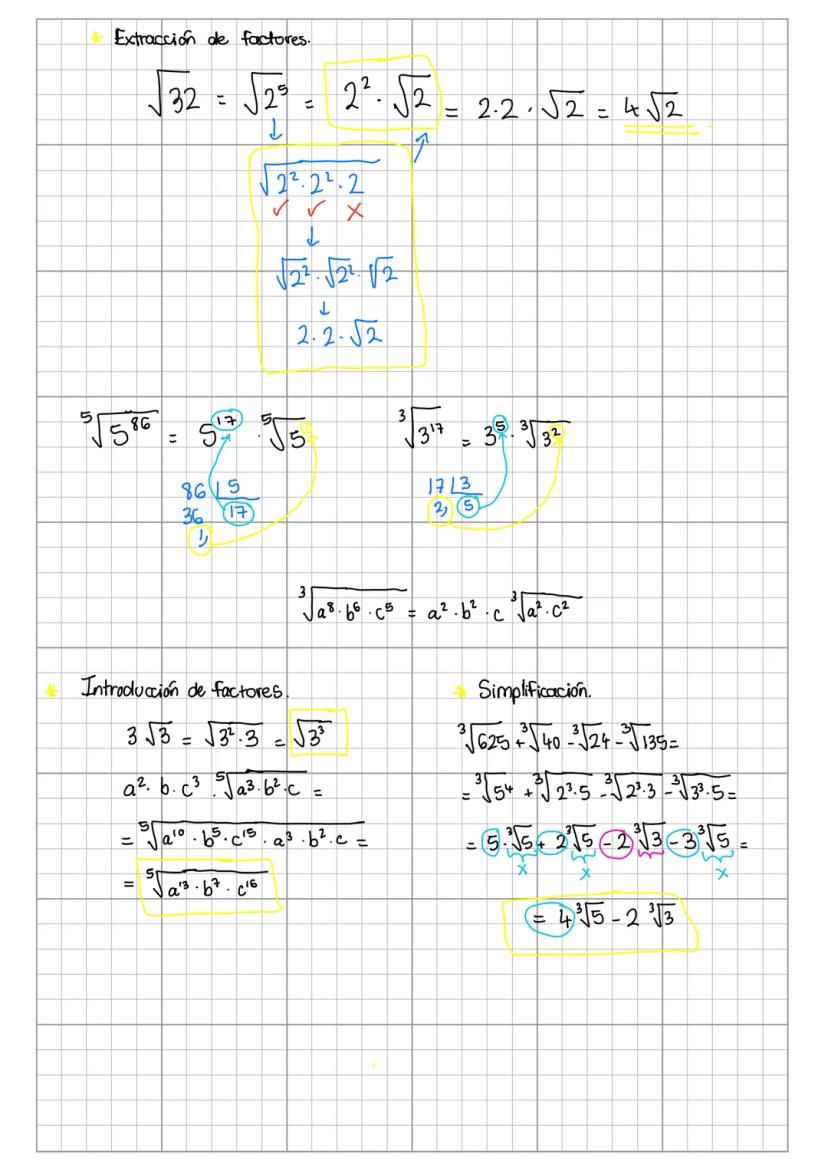 * Extracción de factores.
√32 = √2⁵ = 2² · √2 = 2·2 · √2 = 4√2
↓ ↗
√2²·2²·2
✓ ✓ ✗
↓
√2² · √2² · √2
↓
2·2·√2
⁵√5⁸⁶ = 5¹⁷ · ⁵√5¹
86 |5
36 17
1,
³√3¹⁷ = 3⁵ · ³√3²
17 |3
2, 5
³√a⁸·b⁶·c⁵ = a²·b²·c ³√a²·c²
* Introducción de factores.
3√3 = √3²·3 = √3³
a²·b·c³ · ⁵√a³·b²·c =
= ⁵√a¹⁰·b⁵·c¹⁵·a³·b²·c =
= ⁵√a¹³·b⁷·c¹⁶
* Simplificación.
³√625 + ³√40 - ³√24 - ³√135 =
= ³√5⁴ + ³√2³·5 - ³√2³·3 - ³√3³·5 =
= 5·³√5 + 2³√5 - 2³√3 - 3³√5 =
x x x
= 4³√5 - 2³√3